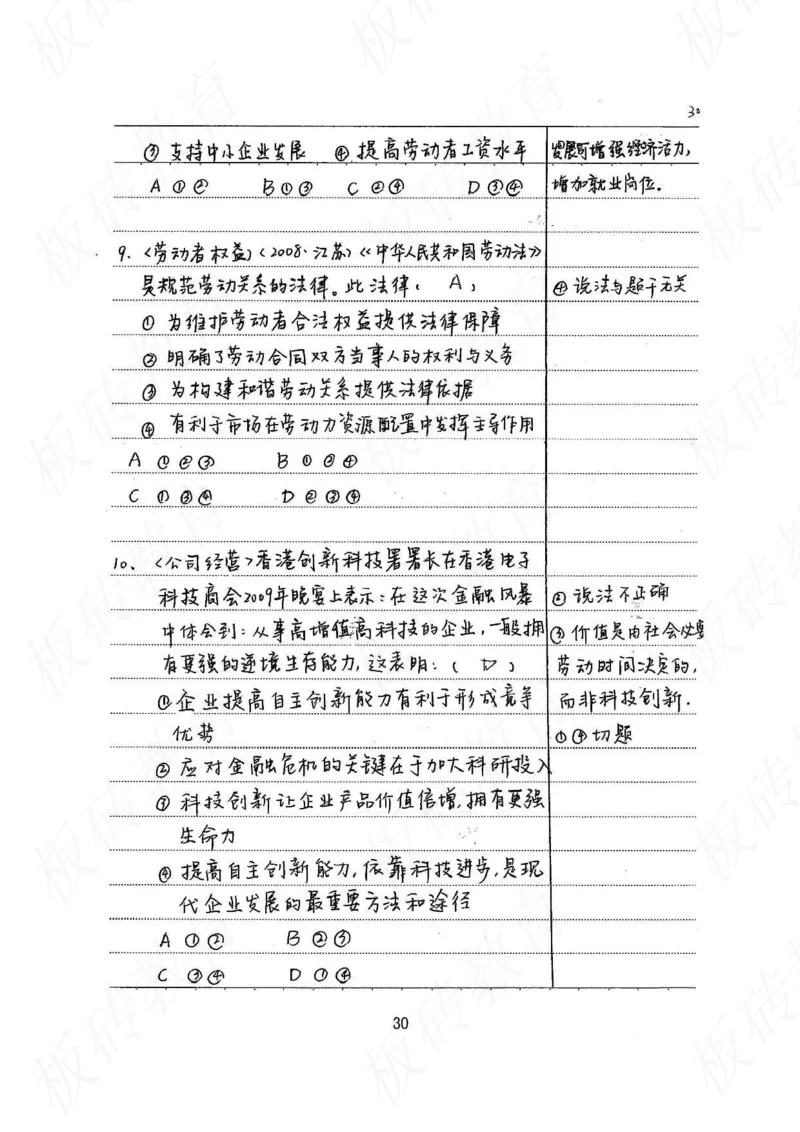 30
③ 支持中小企业发展 ④ 提高劳动者工资水平
A ①② B ①③ C ②④ D ③④
发展可增强经济活力,
增加就业岗位。
9、〈劳动者权益〉(2008·江苏)《中华人民共和国劳动法》
是规范劳动关系的法律。此法律( A )
① 为维护劳动者合法权益提供法律保障
② 明确了劳动合同双方当事人的权利与义务
③ 为构建和谐劳动关系提供法律依据
④ 有利于市场在劳动力资源配置中发挥主导作用
A ①②③ B ①②④
C ①③④ D ②③④
④ 说法与题干无关
10、〈公司经营〉香港创新科技署署长在香港电子
科技商会2009年晚宴上表示:在这次金融风暴
中体会到:从事高增值高科技的企业,一般拥
有更强的逆境生存能力,这表明:( D )
① 企业提高自主创新能力有利于形成竞争
优势
② 应对金融危机的关键在于加大科研投入
③ 科技创新让企业产品价值倍增,拥有更强
生命力
④ 提高自主创新能力,依靠科技进步,是现
代企业发展的最重要方法和途径
A ①② B ②③
C ③④ D ①④
② 说法不正确
③ 价值是由社会必要
劳动时间决定的,
而非科技创新.
①④切题
30
板砖教育